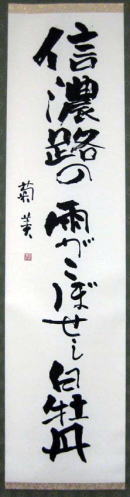 信濃路の雨がこぼせし白牡丹
菊業